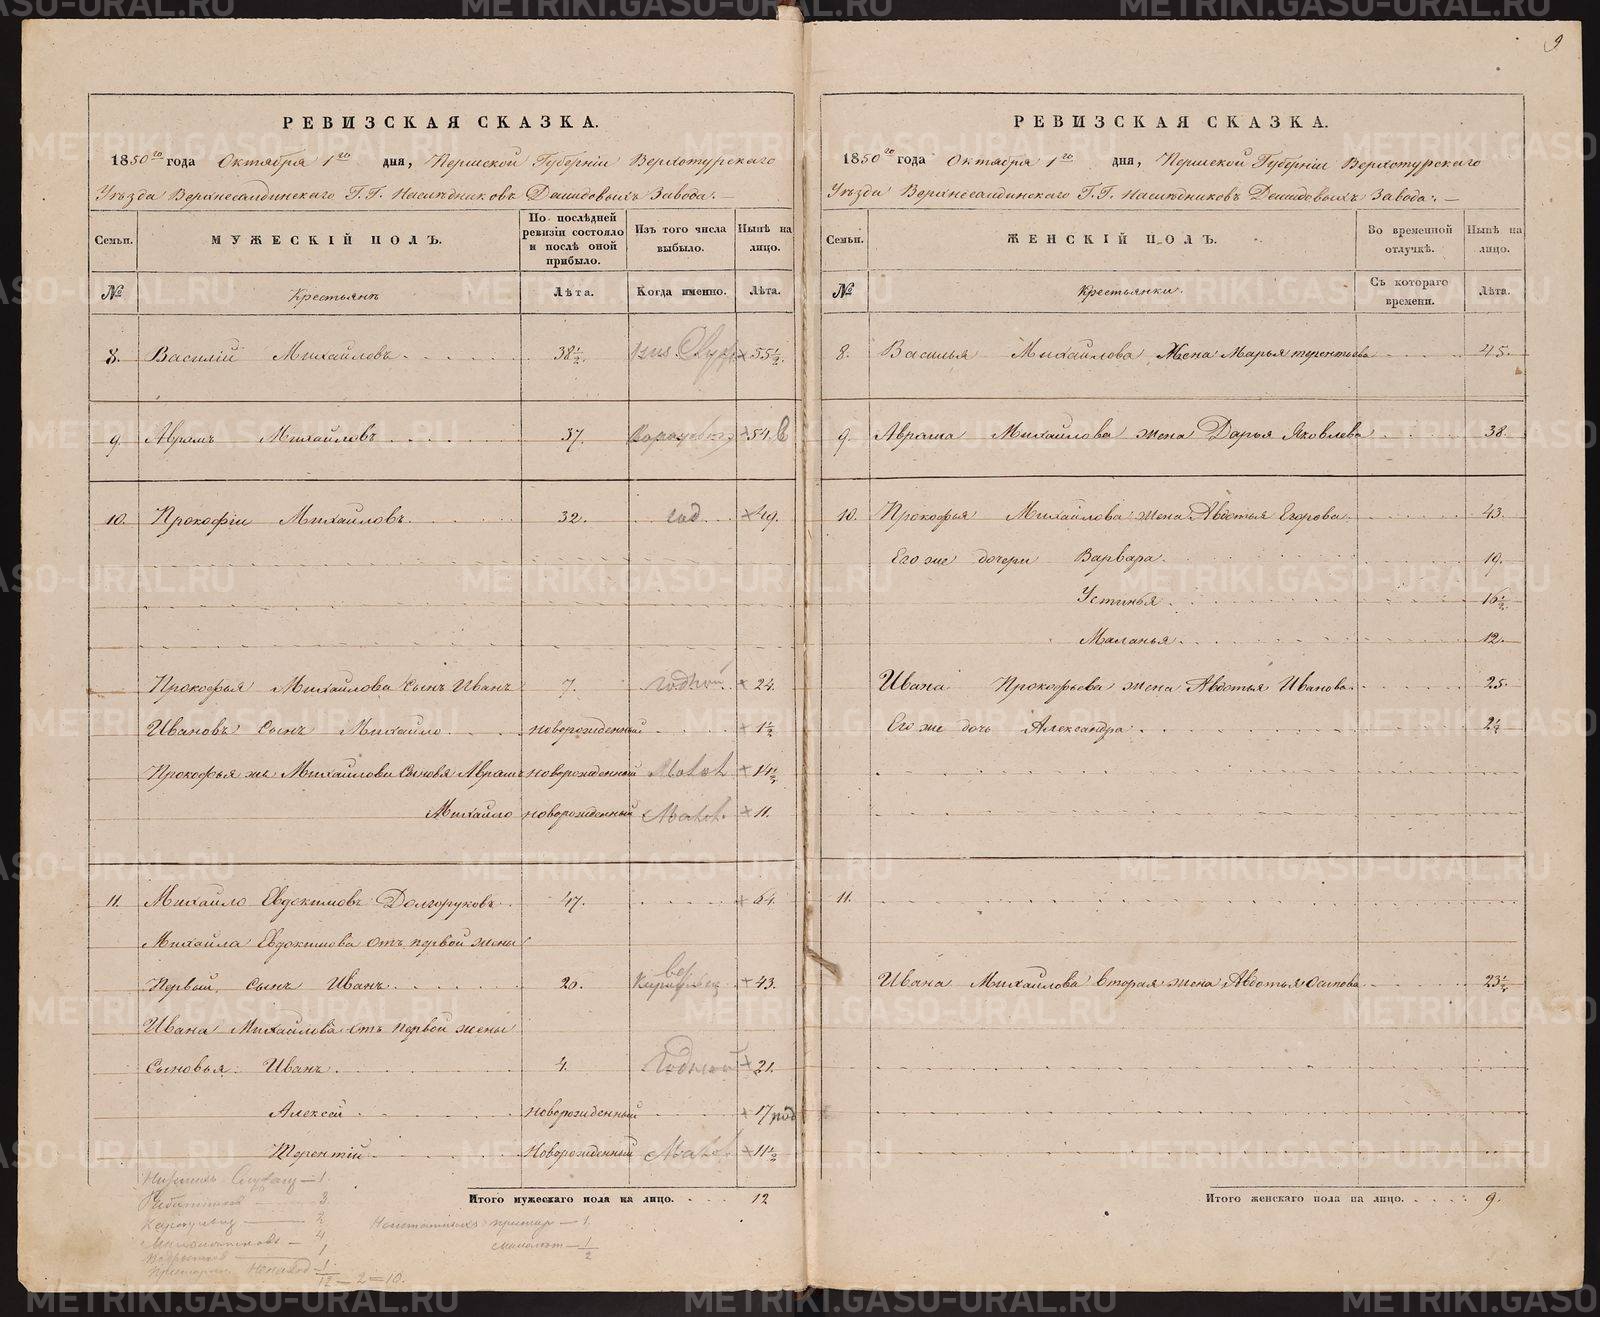 9
РЕВИЗСКАЯ СКАЗКА.
1850го года Октября 1го дня, Пермской Губернiи Верхотурскаго
Уѣзда Верхнесалдинскаго Г.Г. Наслѣдниковъ Демидовыхъ Завода:
Семьи.
МУЖЕСКIЙ ПОЛЪ.
По послѣдней ревизiи состояло и послѣ оной прибыло.
Изъ того числа выбыло.
Нынѣ на лицо.
№
Крестьянъ
Лѣта.
Когда именно.
Лѣта.
8. Василiй Михайловъ 38½ 55½
9. Аврамъ Михайловъ 37. 54.
10. Прокофiи Михайловъ 32. 49.
Прокофья Михайлова Сынъ Иванъ 7. Годной 24.
Ивановъ Сынъ Михайло новорожденный 1½
Прокофья же Михайлова Сыновя Аврамъ новорожденный Малол 14½
Михайло новорожденный Малол. 11.
11. Михайло Евдокимовъ Долгоруковъ 47. 64.
Михайла Евдокимова отъ первой жены
Первый Сынъ Иванъ 26. 43.
Ивана Михайлова отъ первой жены
Сыновья: Иванъ 4. Годной 21.
Алексей новорожденный 17
Терентiй Новорожденный Малол. 11½
Итого мужескаго пола на лицо. 12
1
3
2
4
1
1
12 — 2 = 10.
1.
1
2
РЕВИЗСКАЯ СКАЗКА.
1850го года Октября 1го дня, Пермской Губернiи Верхотурскаго
Уѣзда Верхнесалдинскаго Г.Г. Наслѣдниковъ Демидовыхъ Завода:
Семьи.
ЖЕНСКIЙ ПОЛЪ.
Во временной отлучкѣ.
Нынѣ на лицо.
№
Крестьянки.
Съ котораго времени.
Лѣта.
8. Василья Михайлова Жена Марья терентьева 45.
9. Аврама Михайлова жена Дарья Яковлева 38.
10. Прокофья Михайлова жена Авдотья Егорова 43.
Его же дочери Варвара 19.
Устинья 16½
Маланья 12.
Ивана Прокофьева жена Авдотья Иванова 25.
Его же дочь Александра 2½
11.
Ивана Михайлова вторая жена Авдотья Осипова 23½
Итого женскаго пола на лицо. 9.
METRIKI.GASO-URAL.RU